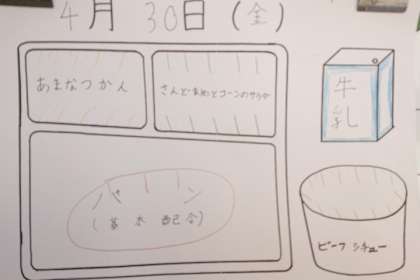 4月 30日(金)
あまなつかん
さんどまめとコーンのサラダ
牛乳
パン
(基本配合)
ビーフシチュー